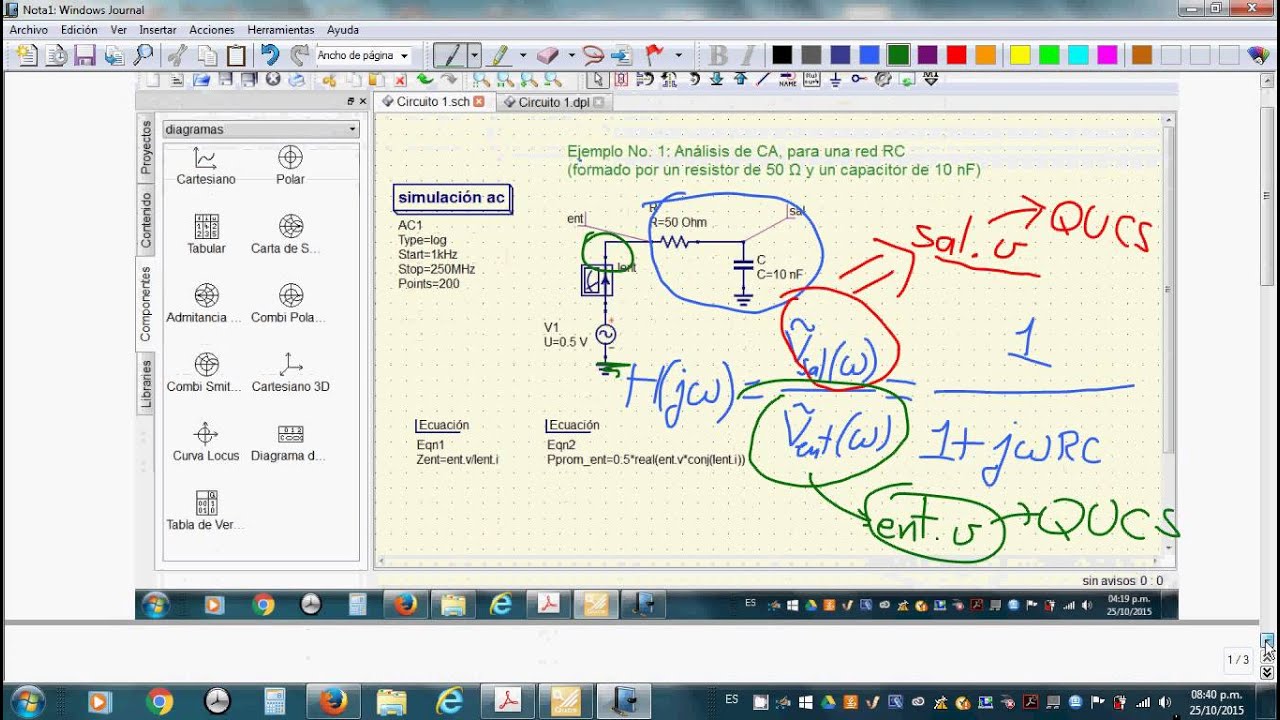 Nota1: Windows Journal
Archivo Edición Ver Insertar Acciones Herramientas Ayuda
Ancho de página
B I
NAME
Circuito 1.sch Circuito 1.dpl
Proyectos
Contenido
Componentes
Libraries
diagramas
Cartesiano Polar
Tabular Carta de S...
Admitancia ... Combi Pola...
Combi Smit... Cartesiano 3D
Curva Locus Diagrama d...
Tabla de Ver...
Ejemplo No. 1: Análisis de CA, para una red RC
(formado por un resistor de 50 Ω y un capacitor de 10 nF)
simulación ac
AC1
Type=log
Start=1kHz
Stop=250MHz
Points=200
ent
R
R=50 Ohm
sal
Ient
C
C=10 nF
V1
U=0.5 V
sal.v → QUCS
H(jω) = Ṽsal(ω) / Ṽent(ω) = 1 / 1+jωRC
ent.v → QUCS
Ecuación
Eqn1
Zent=ent.v/Ient.i
Ecuación
Eqn2
Pprom_ent=0.5*real(ent.v*conj(Ient.i))
sin avisos 0 : 0
ES
04:19 p.m.
25/10/2015
1 / 3
ES
08:40 p.m.
25/10/2015